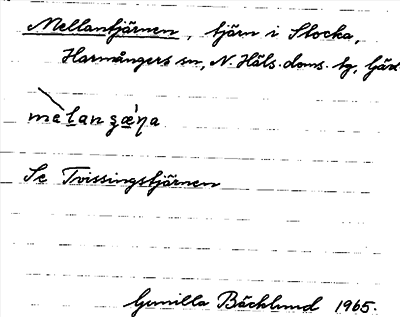 Mellantjärnen, tjärn i Stocka,
Harmångers sn, N. Häls. doms. tg, Gävl
Se Tvissingstjärnen
Gunilla Bäcklund 1965.